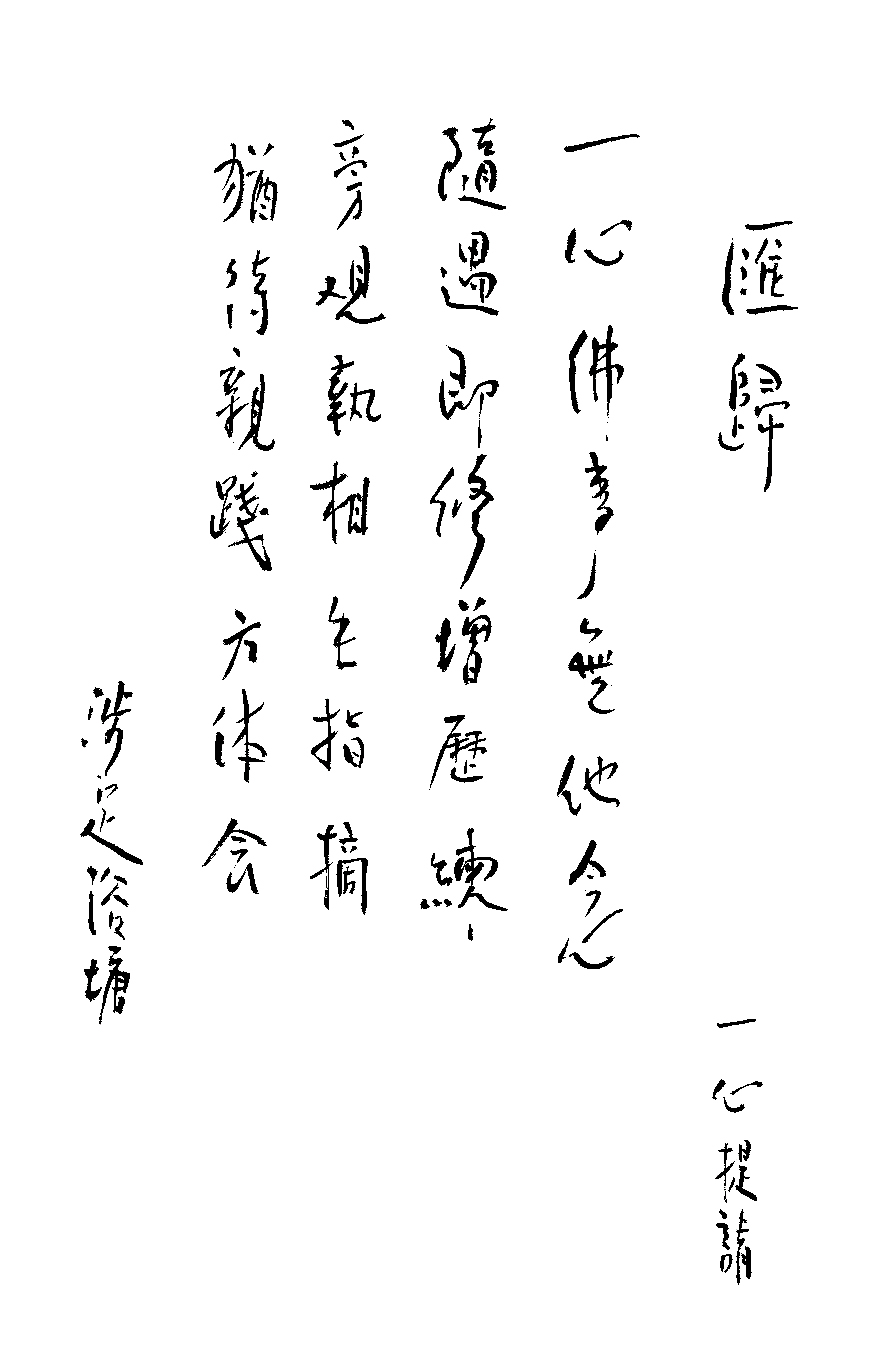 匯歸
一心提請
一心佛事無他念
隨遇即修增歷練
旁观執相乞指摘
猶待親踐方体会
涉足浴